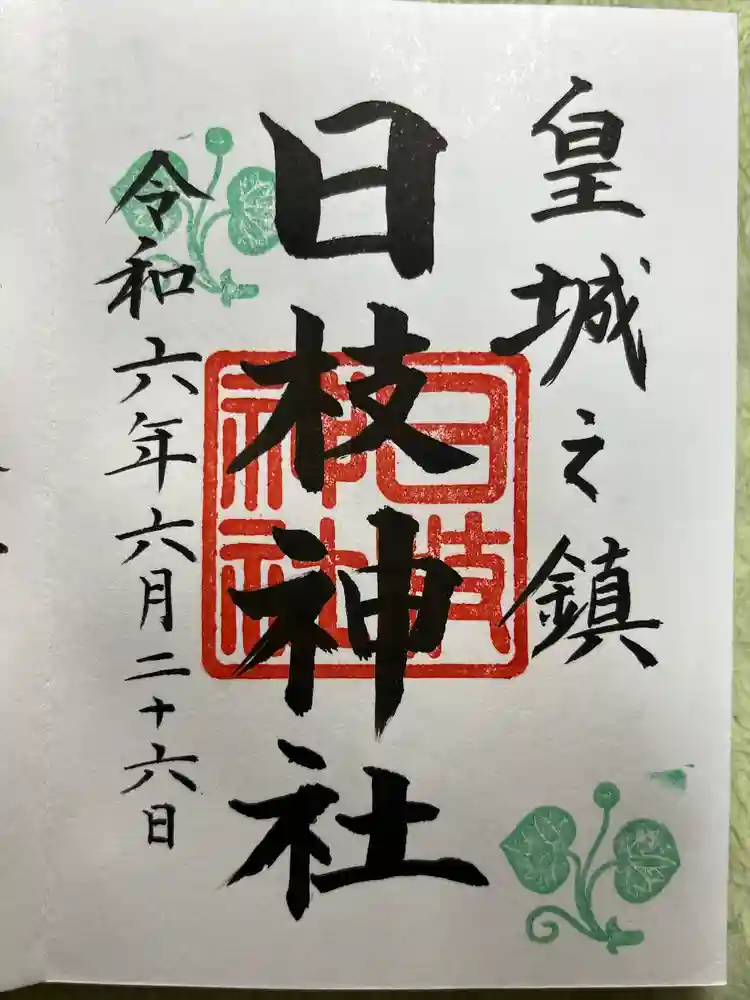 皇城之鎮
日枝神社
日枝神社
令和六年六月二十六日